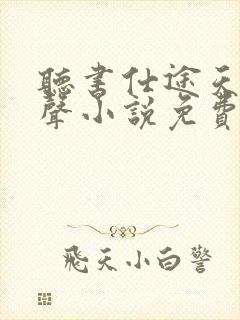 聽書仕途天
聲小說免費
飛天小白警